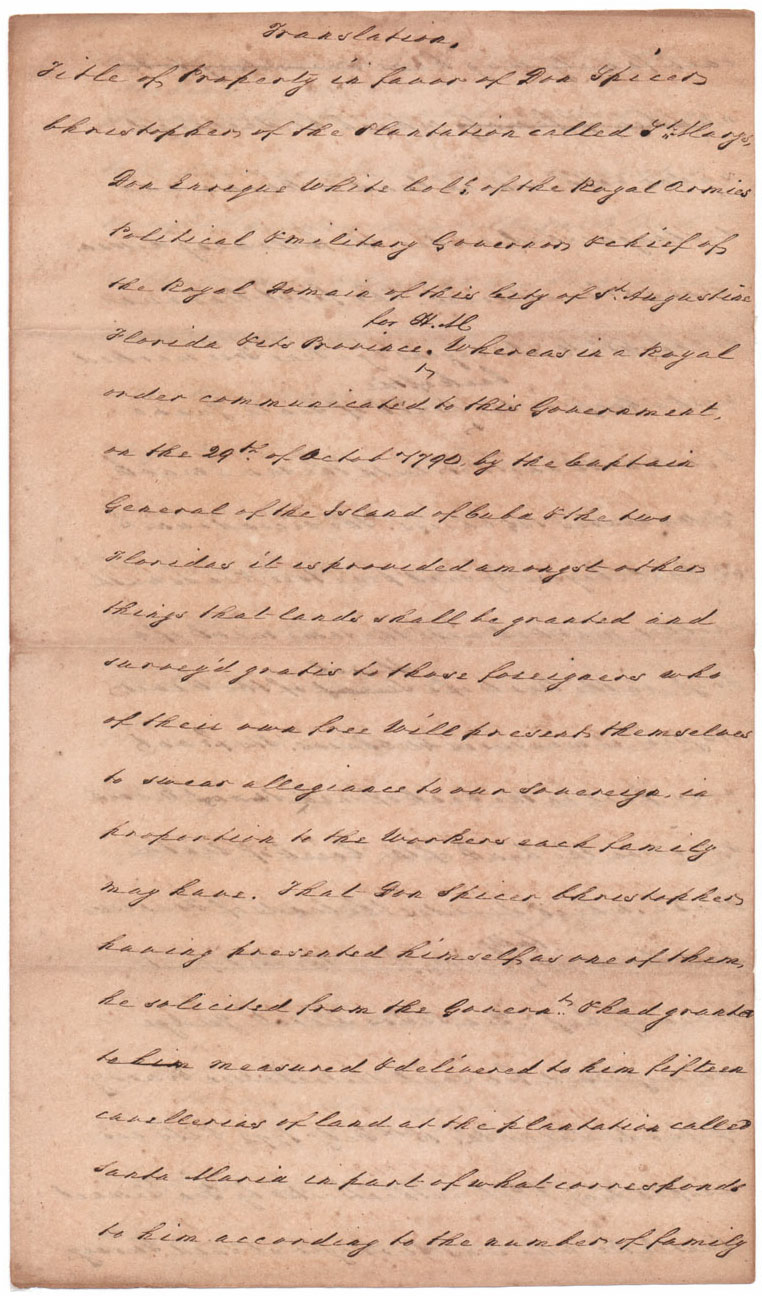 Translation.
Title of Property in favor of Don Spicer
Christopher, of the Plantation called St. Marys,
Don Enrique White Col. of the Royal Armies
Political & military Governor & chief of
the Royal Domain of this City of St. Augustine
for H. M
Florida & its Province. Whereas in a Royal
order communicated to this Government,
on the 29th. of Octobr 1790, by the Captain
General of the Island of Cuba & the two
Floridas it is provided amongst other
things that lands shall be granted and
survey'd gratis to those foreigners who
of their own free Will present themselves
to swear allegiance to our Sovereign, in
proportion to the Workers each family
may have. That Don Spicer Christopher,
having presented himself as one of them,
he solicited from the Governt. & had granted
to him measured & delivered to him fifteen
cavellerias of land at the plantation called
Santa Maria in part of what corresponds
to him according to the number of family